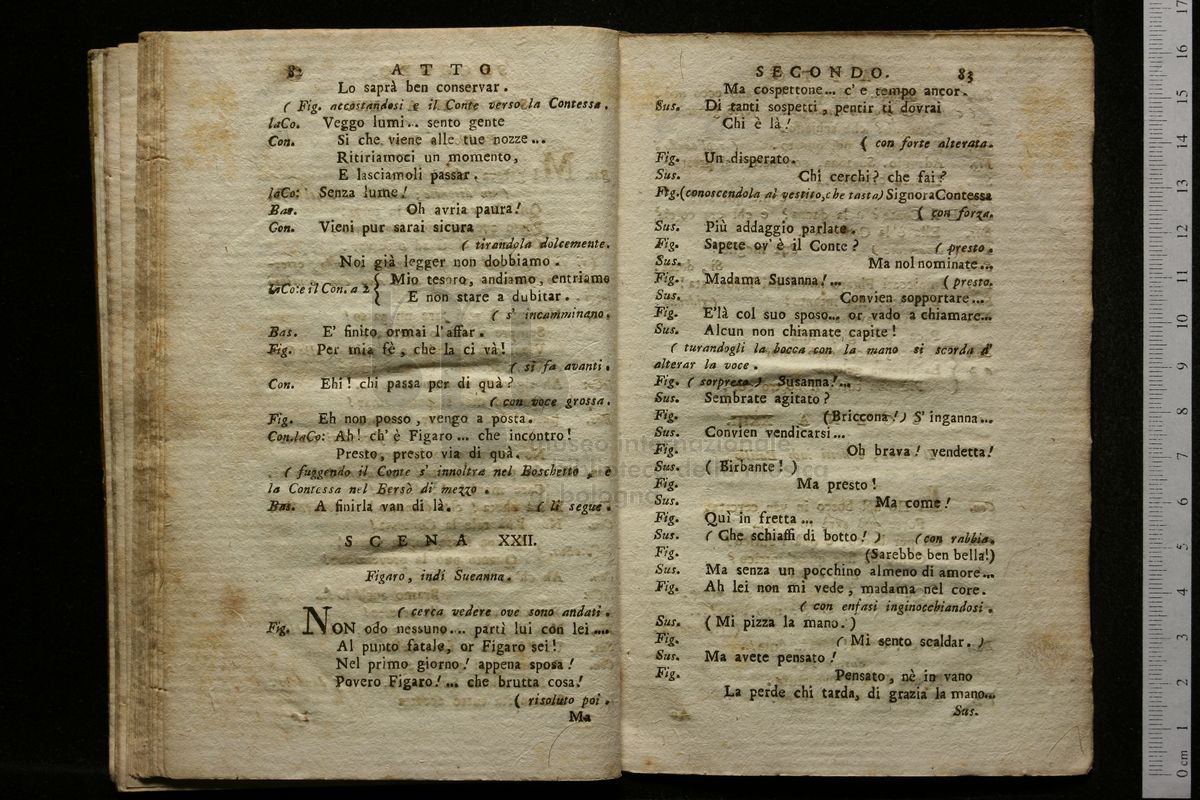 82 ATTO
Lo saprà ben conservar.
( Fig. accostandosi e il Conte verso la Contessa.
laCo. Veggo lumi.. sento gente
Con. Si che viene alle tue nozze...
Ritiriamoci un momento,
E lasciamoli passar.
laCo: Senza lume!
Bas. Oh avria paura!
Con. Vieni pur sarai sicura
( tirandola dolcemente.
Noi già legger non dobbiamo.
laCo:e il Con. a 2 { Mio tesoro, andiamo, entriamo
E non stare a dubitar.
( s' incamminano.
Bas. E' finito ormai l'affar.
Fig. Per mia fè, che la ci và!
( si fa avanti.
Con. Ehi! chi passa per di quà?
( con voce grossa.
Fig. Eh non posso, vengo a posta.
Con.laCo: Ah! ch' è Figaro... che incontro!
Presto, presto via di quà.
( fuggendo il Conte s' innoltra nel Boschetto, e
la Contessa nel Bersò di mezzo.
Bas. A finirla van di là. ( li segue.
SCENA XXII.
Figaro, indi Sueanna.
( cerca vedere ove sono andati.
Fig. NON odo nessuno... partì lui con lei....
Al punto fatale, or Figaro sei!
Nel primo giorno! appena sposa!
Povero Figaro!... che brutta cosa!
( risoluto poi.
Ma
SECONDO. 83
Ma cospettone... c' e tempo ancor.
Sus. Di tanti sospetti, pentir ti dovrai
Chi è là!
( con forte alterata.
Fig. Un disperato.
Sus. Chi cerchi? che fai?
Fig.(conoscendola al vestito,che tasta) SignoraContessa
( con forza.
Sus. Più addaggio parlate.
Fig. Sapete ov' è il Conte? ( presto.
Sus. Ma nol nominate...
Fig. Madama Susanna!... ( presto.
Sus. Convien sopportare...
Fig. E'là col suo sposo... or vado a chiamare...
Sus. Alcun non chiamate, capite!
( turandogli la bocca con la mano si scorda d'
alterar la voce.
Fig. ( sorpreso ) Susanna!...
Sus. Sembrate agitato?
Fig. (Briccona!) S' inganna...
Sus. Convien vendicarsi...
Fig. Oh brava! vendetta!
Sus. ( Birbante! )
Fig. Ma presto!
Sus. Ma come!
Fig. Quì in fretta...
Sus. ( Che schiaffi di botto! ) (con rabbia.
Fig. (Sarebbe ben bella!)
Sus. Ma senza un pocchino almeno di amore...
Fig. Ah lei non mi vede, madama nel core.
( con enfasi inginocchiandosi.
Sus. ( Mi pizza la mano. )
Fig. ( Mi sento scaldar. )
Sus. Ma avete pensato!
Fig. Pensato, nè in vano
La perde chi tarda, di grazia la mano...
Sus.
museo internazionale
e biblioteca della musica
di bologna
0 cm 1 2 3 4 5 6 7 8 9 10 11 12 13 14 15 16 17